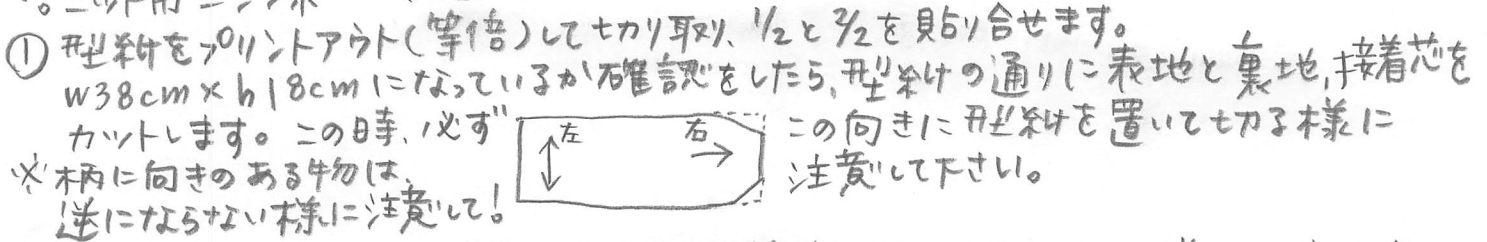 ① 型紙をプリントアウト(等倍)して切り取り、1/2と2/2を貼り合せます。
w38cm×h18cmになっているか確認をしたら、型紙の通りに表地と裏地,接着芯を
カットします。この時、必ず 左 右 この向きに型紙を置いて切る様に
※柄に向きのある物は、 注意して下さい。
逆にならない様に注意して!